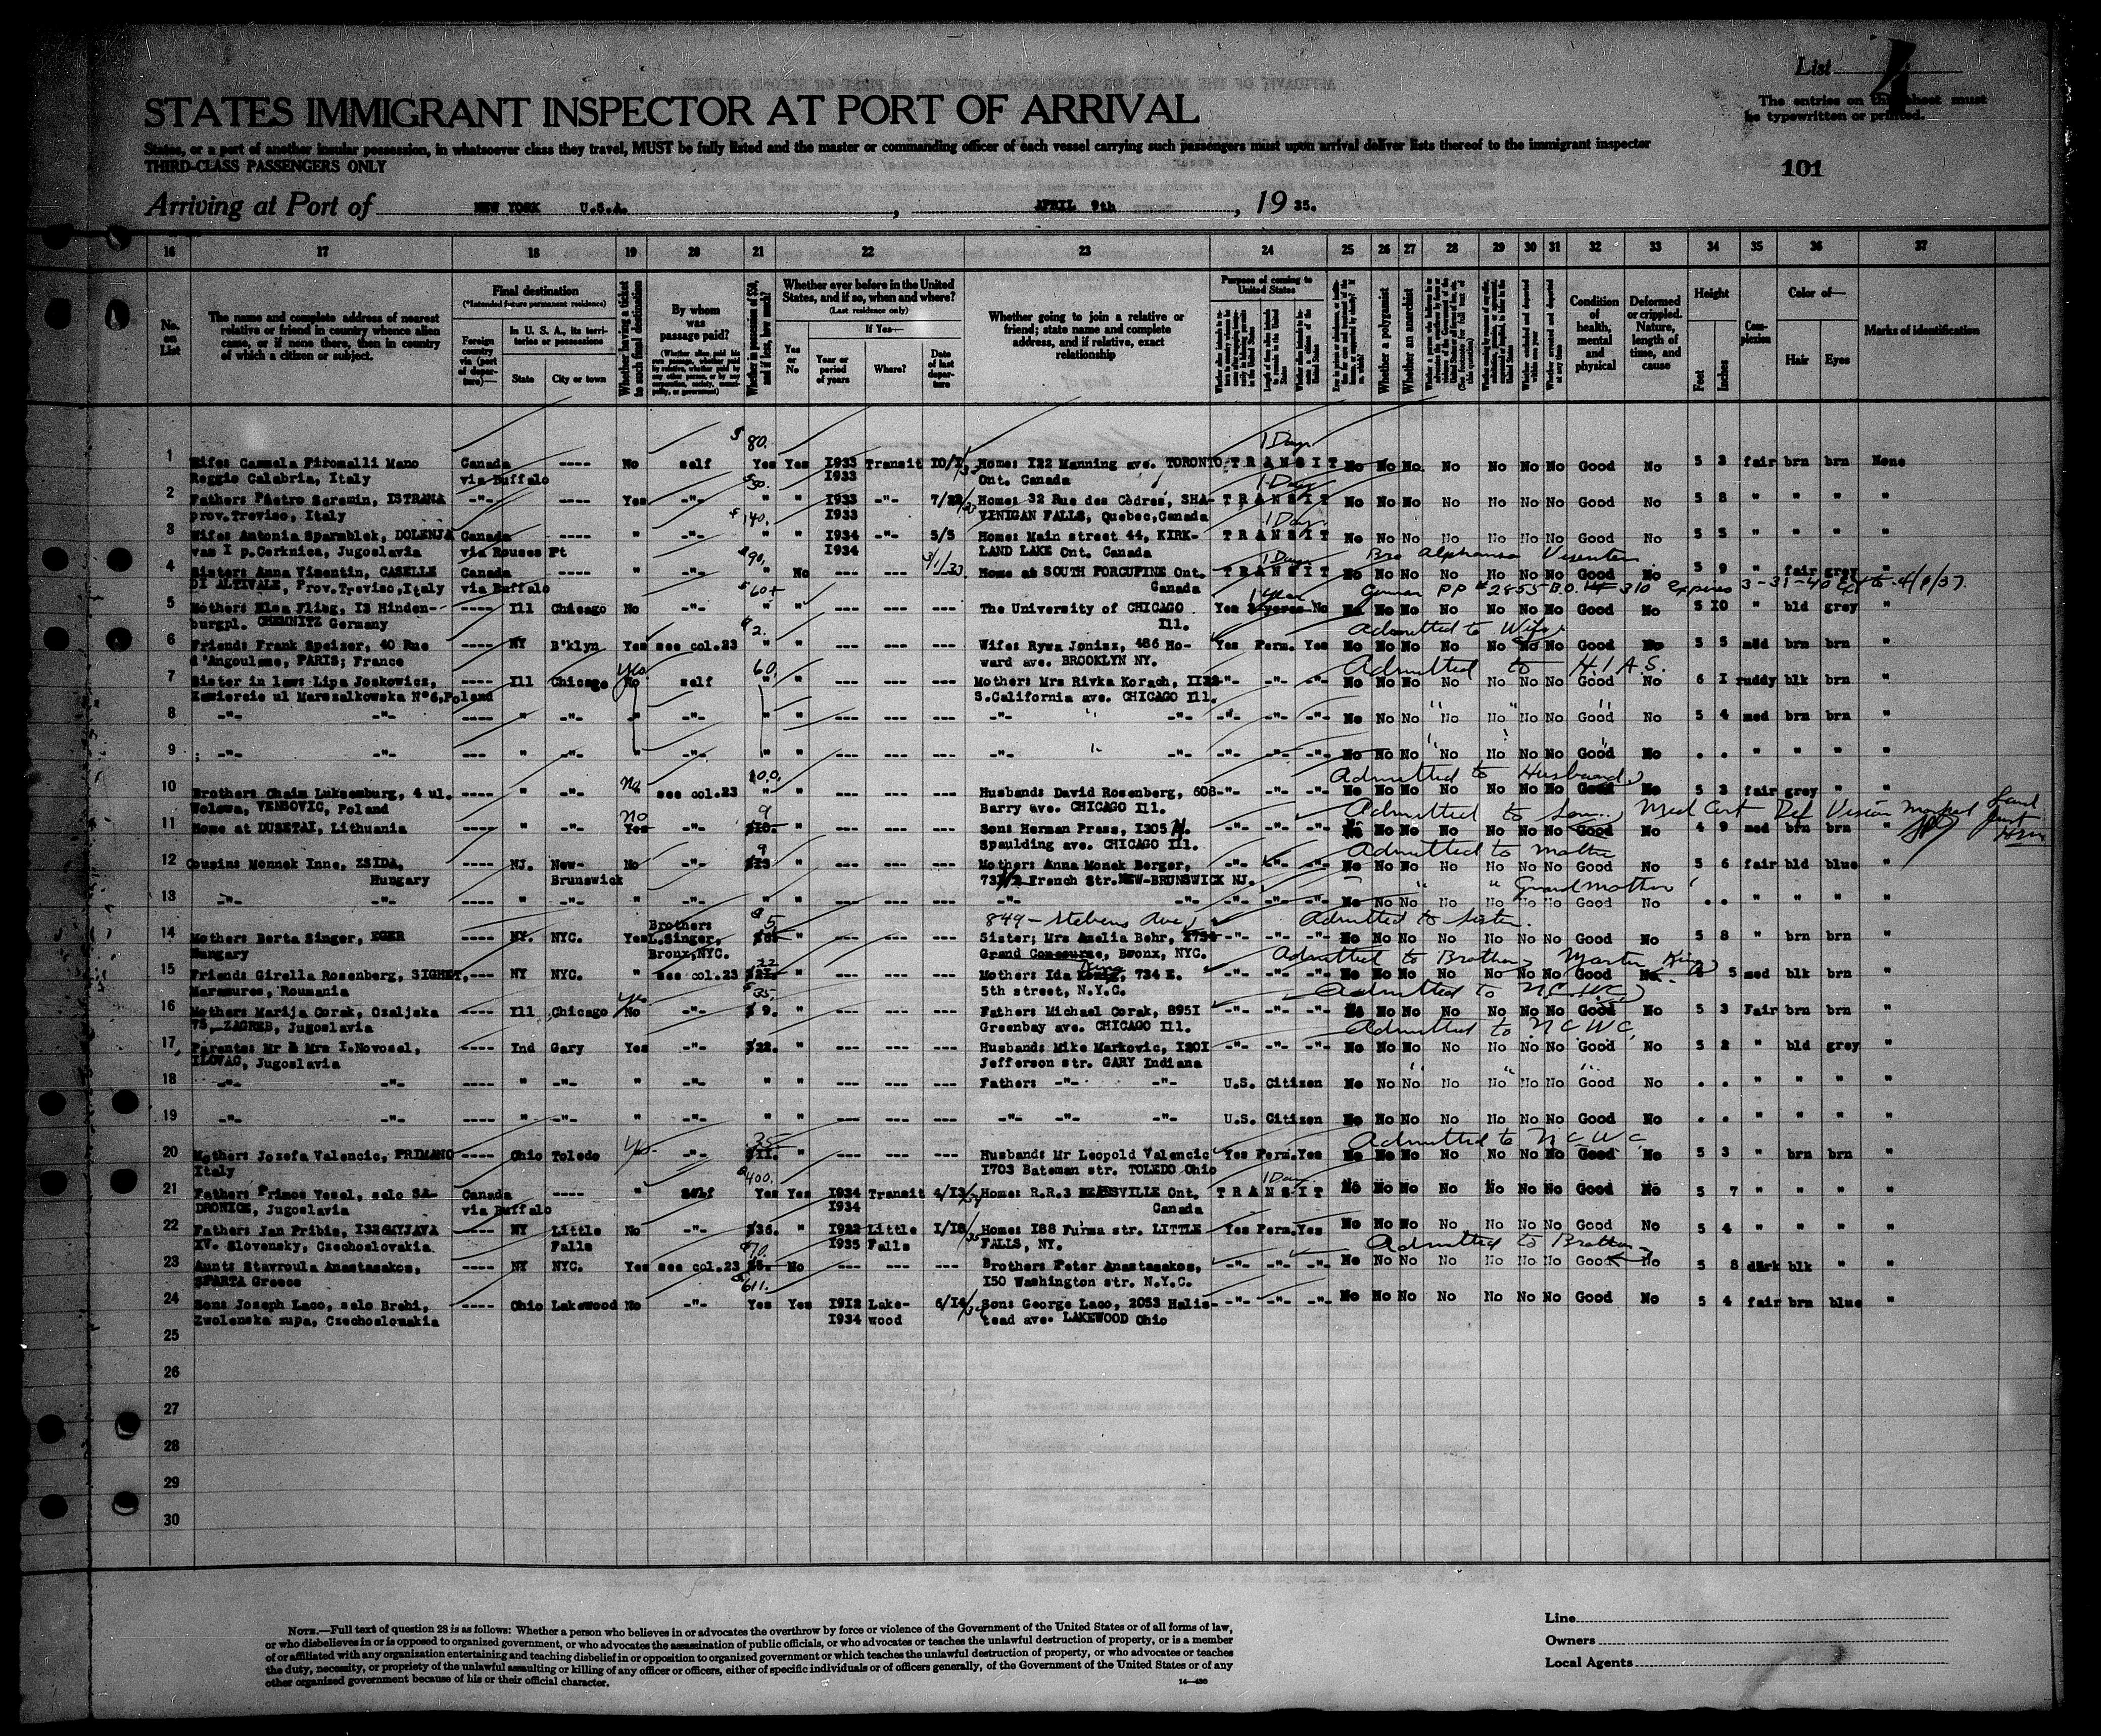 List 4
The entries on this sheet must
be typewritten or printed.
STATES IMMIGRANT INSPECTOR AT PORT OF ARRIVAL
States, or a port of another insular possession, in whatsoever class they travel, MUST be fully listed and the master or commanding officer of each vessel carrying such passengers must upon arrival deliver lists thereof to the immigrant inspector
THIRD-CLASS PASSENGERS ONLY
101
Arriving at Port of NEW YORK U.S.A. , APRIL 9th , 19 35.
16 17 18 19 20 21 22 23 24 25 26 27 28 29 30 31 32 33 34 35 36 37
No. on List
The name and complete address of nearest relative or friend in country whence alien came, or if none there, then in country of which a citizen or subject.
Final destination
(*Intended future permanent residence)
Foreign country via (port of departure)—
In U. S. A., its territories or possessions
State
City or town
Whether having a ticket to such final destination
By whom was passage paid?
Whether in possession of $50, and if less, how much?
Whether ever before in the United States, and if so, when and where?
(Last residence only)
Yes or No
If Yes—
Year or period of years
Where?
Date of last departure
Whether going to join a relative or friend; state name and complete address, and if relative, exact relationship
Purpose of coming to United States
Whether a polygamist
Whether an anarchist
Condition of health, mental and physical
Deformed or crippled. Nature, length of time, and cause
Height
Feet
Inches
Complexion
Color of—
Hair
Eyes
Marks of identification
$ 80. 1 Day
1 Wife: Carmela Piromalli Mano Canada ---- No self Yes Yes 1933 Transit 10/1 Home: 122 Manning ave. TORONTO TRANSIT No No No No No No No Good No 5 3 fair brn brn None
Reggio Calabria, Italy via Buffalo 1933 Ont. Canada
$50. 1 Day
2 Father: Pietro Seremin, ISTRANA -"- ---- Yes -"- " " 1933 -"- 7/22/33 Home: 32 Rue des Cèdres, SHA- TRANSIT No No No No No No No Good No 5 8 " " " "
prov.Treviso, Italy 1933 VINIGAN FALLS, Quebec,Canada
$ 140. 1 Day
3 Wife: Antonia Sparmblek, DOLENJA Canada ---- " -"- " " 1934 -"- 5/5 Home: Main street 44, KIRK- TRANSIT No No No No No No No Good No 5 5 " " " "
vas I p.Cerknica, Jugoslavia via Rouses Pt 1934 LAND LAKE Ont. Canada
$90. 1 Day Bro Alphonso
4 Sister: Anna Visentin, CASELLE Canada ---- " -"- " No --- --- Home at SOUTH PORCUPINE Ont. TRANSIT No No No No No No No Good No 5 9 " fair grey "
DI ALTIVALE, Prov.Treviso,Italy via Buffalo Canada
$60+ 1 year German PP #2855 Expires 3-31-40 4/9/37
5 Mother: Elsa Flieg, 13 Hinden- ---- Ill Chicago No -"- " " --- --- --- The University of CHICAGO Yes No No No No No No No No Good No 5 10 " bld grey "
burgpl. CHEMNITZ Germany Ill.
$2. Admitted to Wife
6 Friend: Frank Speizer, 40 Rue ---- NY B'klyn Yes see col.23 " " --- --- --- Wife: Rywa Jonisz, 486 Ho- Yes Perm. Yes No No No No No No No Good No 5 5 med brn brn "
d'Angouleme, PARIS; France ward ave. BROOKLYN NY.
Yes 60. Admitted to H.I.A.S.
7 Sister in law: Lipa Joskowicz, ---- Ill Chicago No self " " --- --- --- Mother: Mrs Rivka Korach, 1122 -"- -"- -"- No No No No No No No Good No 6 1 ruddy blk brn "
Zawiercie ul Marszalkowska N°6,Poland S.California ave. CHICAGO Ill.
8 -"- -"- ---- " -"- " -"- " " --- --- --- -"- -"- -"- -"- -"- No No No No No No No Good No 5 4 med brn brn "
9 -"- -"- ---- " -"- " -"- " " --- --- --- -"- -"- -"- -"- -"- No No No No No No No Good No . . " " " "
No 100. Admitted to Husband
10 Brother: Chaim Luksemburg, 4 ul. ---- " -"- " see col.23 " " --- --- --- Husband: David Rosenberg, 608 -"- -"- -"- No No No No No No No Good No 5 3 fair grey " "
Wolowa, VENSOVIC, Poland Barry ave. CHICAGO Ill.
No 9 Admitted to Son Med Cert Def Vision
11 Home at DUSETAI, Lithuania ---- " -"- Yes -"- $10. " --- --- --- Son: Herman Press, 1305 N. -"- -"- -"- No No No No No No No Good No 4 9 med brn brn "
Spaulding ave. CHICAGO Ill.
9 Admitted to Mother
12 Cousin: Monnek Inne, ZSIDA, ---- NJ. New- No -"- $13 " --- --- --- Mother: Anna Monek Berger, -"- -"- -"- No No No No No No No Good No 5 6 fair bld blue "
Hungary Brunswick French Str.NEW-BRUNSWICK NJ.
" " Grandmother
13 -"- -"- ---- " -"- " -"- " " --- --- --- -"- -"- -"- -"- -"- No No No No No No No Good No . . " " " "
$5 849 - Stebens Ave Admitted to Sister.
14 Mother: Berta Singer, EGER ---- NY. NYC. Yes Brother: L.Singer, Bronx,NYC. " --- --- --- Sister; Mrs Amelia Behr, -"- -"- -"- No No No No No No No Good No 5 8 " brn brn "
Hungary Grand Concourse, Bronx, NYC.
22 Admitted to Brother Martin King
15 Friend: Girella Rosenberg, SIGHET, --- NY NYC. " see col.23 $21. " --- --- --- Mother: Ida King, 734 E. -"- -"- -"- No No No No No No No Good No 5 med blk brn "
Maramures, Roumania 5th street, N.Y.C.
Yes $35. Admitted to N.C.W.C.
16 Mother: Marija Corak, Ozaljska ---- Ill Chicago No -"- $ 9. " --- --- --- Father: Michael Corak, 8951 -"- -"- -"- No No No No No No No Good No 5 3 Fair brn brn "
75, ZAGREB, Jugoslavia Greenbay ave. CHICAGO Ill.
Admitted to N C W C
17 Parents: Mr & Mrs I.Novosel, ---- Ind Gary Yes -"- $22. " --- --- --- Husband: Mike Markovic, 1201 -"- -"- -"- No No No No No No No Good No 5 2 " bld grey "
ILOVAC, Jugoslavia Jefferson str. GARY Indiana
18 -"- -"- ---- " -"- " -"- " " --- --- --- Father: -"- -"- U.S. Citizen No No No No No No No Good No . . " " " "
19 -"- -"- ---- " -"- " -"- " " --- --- --- -"- -"- -"- U.S. Citizen No No No No No No No Good No . . " " " "
Yes 35 Admitted to N C W C
20 Mother: Jozefa Valencic, PRIMANO ---- Ohio Toledo -"- $11. " --- --- --- Husband: Mr Leopold Valencic Yes Perm. Yes No No No No No No No Good No 5 3 " brn brn "
Italy 1703 Bateman str. TOLEDO Ohio
$400. 1 Day
21 Father: Primos Vesel, selo SA- Canada ---- " self Yes Yes 1934 Transit 4/13/34 Home: R.R.3 BEAMSVILLE Ont. TRANSIT No No No No No No No Good No 5 7 " " " "
DRONICE, Jugoslavia via Buffalo 1934 Canada
22 Father: Jan Pribis, MYJAVA ---- NY Little No -"- $36. " 1922 Little 1/18/35 Home: 188 Furma str. LITTLE Yes Perm. Yes No No No No No No No Good No 5 4 " " " "
XV. Slovensky, Czechoslovakia. Falls 1935 Falls FALLS, NY.
$70. Admitted to Brother
23 Aunt: Stavroula Anastasakos, ---- NY NYC. Yes see col.23 No --- --- --- Brother: Peter Anastasakos, -"- -"- -"- No No No No No No No Good No 5 8 dark blk " "
SPARTA Greece 150 Washington str. N.Y.C.
$611.
24 Son: Joseph Laco, selo Brehi, ---- Ohio Lakewood No -"- Yes Yes 1912 Lake- 6/14/34 Son: George Laco, 2053 Halis- -"- -"- -"- No No No No No No No Good No 5 4 fair brn blue "
Zwolenska zupa, Czechoslovakia 1934 wood tead ave. LAKEWOOD Ohio
25
26
27
28
29
30
NOTE.—Full text of question 28 is as follows: Whether a person who believes in or advocates the overthrow by force or violence of the Government of the United States or of all forms of law,
or who disbelieves in or is opposed to organized government, or who advocates the assassination of public officials, or who advocates or teaches the unlawful destruction of property, or is a member
of or affiliated with any organization entertaining and teaching disbelief in or opposition to organized government or which teaches the unlawful destruction of property, or who advocates or teaches
the duty, necessity, or propriety of the unlawful assaulting or killing of any officer or officers, either of specific individuals or of officers generally, of the Government of the United States or of any
other organized government because of his or their official character.
14—430
Line
Owners
Local Agents